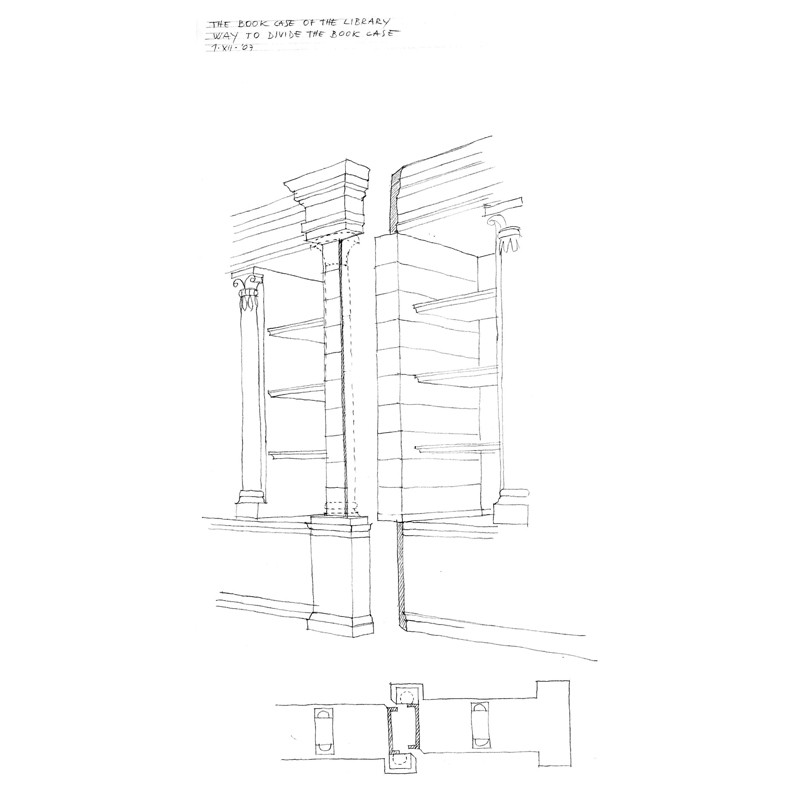 THE BOOK CASE OF THE LIBRARY
WAY TO DIVIDE THE BOOK CASE
9·XII-'07